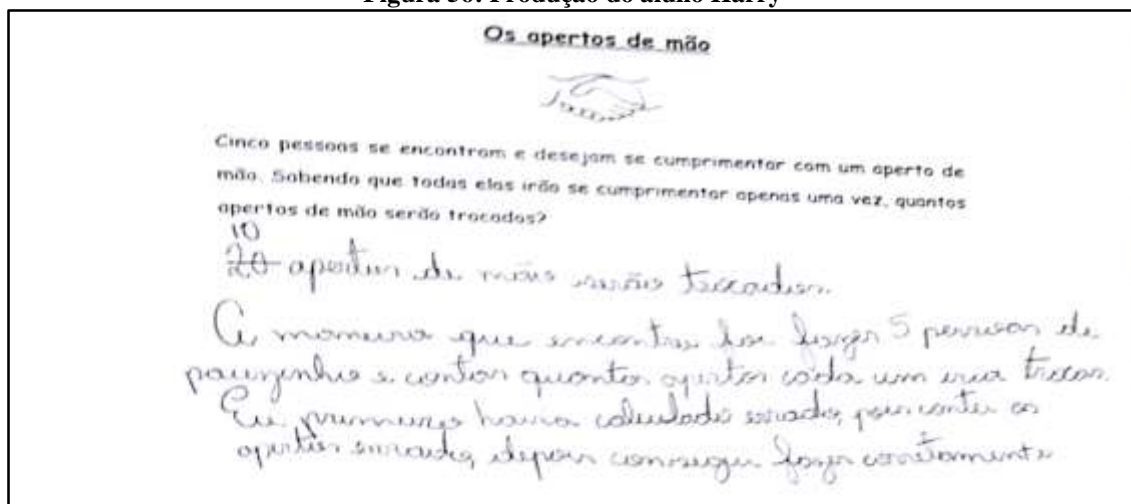 Figura 50: Produção do aluno Harry
Os apertos de mão
Cinco pessoas se encontram e desejam se cumprimentar com um aperto de
mão. Sabendo que todas elas irão se cumprimentar apenas uma vez, quantos
apertos de mão serão trocados?
10
20 apertos de mãos serão trocados.
A maneira que encontrei foi fazer 5 pessoas de
pauzinho e contar quantos apertos cada um iria trocar.
Eu primeiro havia calculado errado, pois contei os
apertos errado, depois consegui fazer corretamente